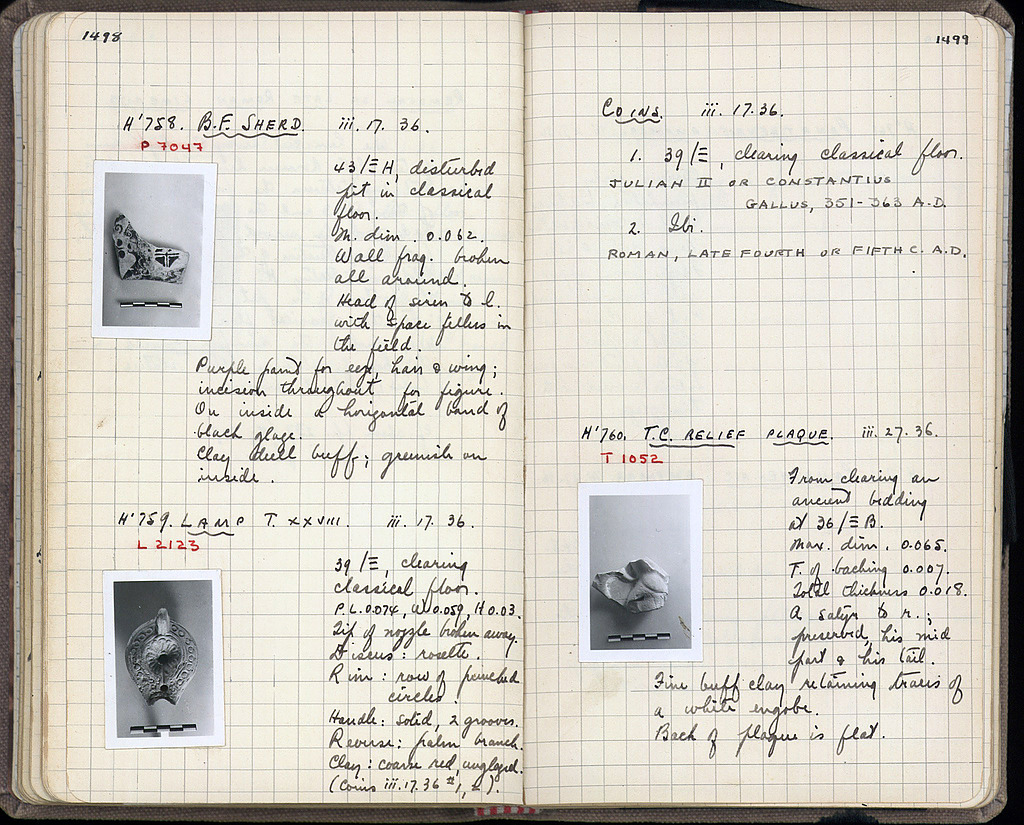 1498
H'758. B.F. SHERD. iii. 17. 36.
P 7047
43/Ξ H, disturbed
pit in classical
floor.
M. dim. 0.062.
Wall frag. broken
all around.
Head of siren to l.
with space fillers in
the field.
Purple paint for eye, hair & wing;
incision throughout for figure.
On inside a horizontal band of
black glaze.
Clay dull buff; greenish on
inside.
H'759. LAMP T. XXVIII. iii. 17. 36.
L 2123
39/Ξ, clearing
classical floor.
P.L. 0.074, W 0.059, H 0.03.
Tip of nozzle broken away.
Discus: rosette.
Rim: row of punched
circles.
Handle: solid, 2 grooves.
Reverse: palm branch.
Clay: coarse red, unglazed.
(Coins iii.17.36 #1, 2).
1499
COINS. iii. 17.36.
1. 39/Ξ, clearing classical floor.
JULIAN II OR CONSTANTIUS
GALLUS, 351-363 A.D.
2. Ibi.
ROMAN, LATE FOURTH OR FIFTH C. A.D.
H'760. T.C. RELIEF PLAQUE. iii. 27. 36.
T 1052
From clearing an
ancient bedding
at 36/Ξ B.
Max. dim. 0.065.
T. of backing 0.007.
Total thickness 0.018.
A satyr to r.;
preserved, his mid
part & his tail.
Fine buff clay retaining traces of
a white engobe.
Back of plaque is flat.